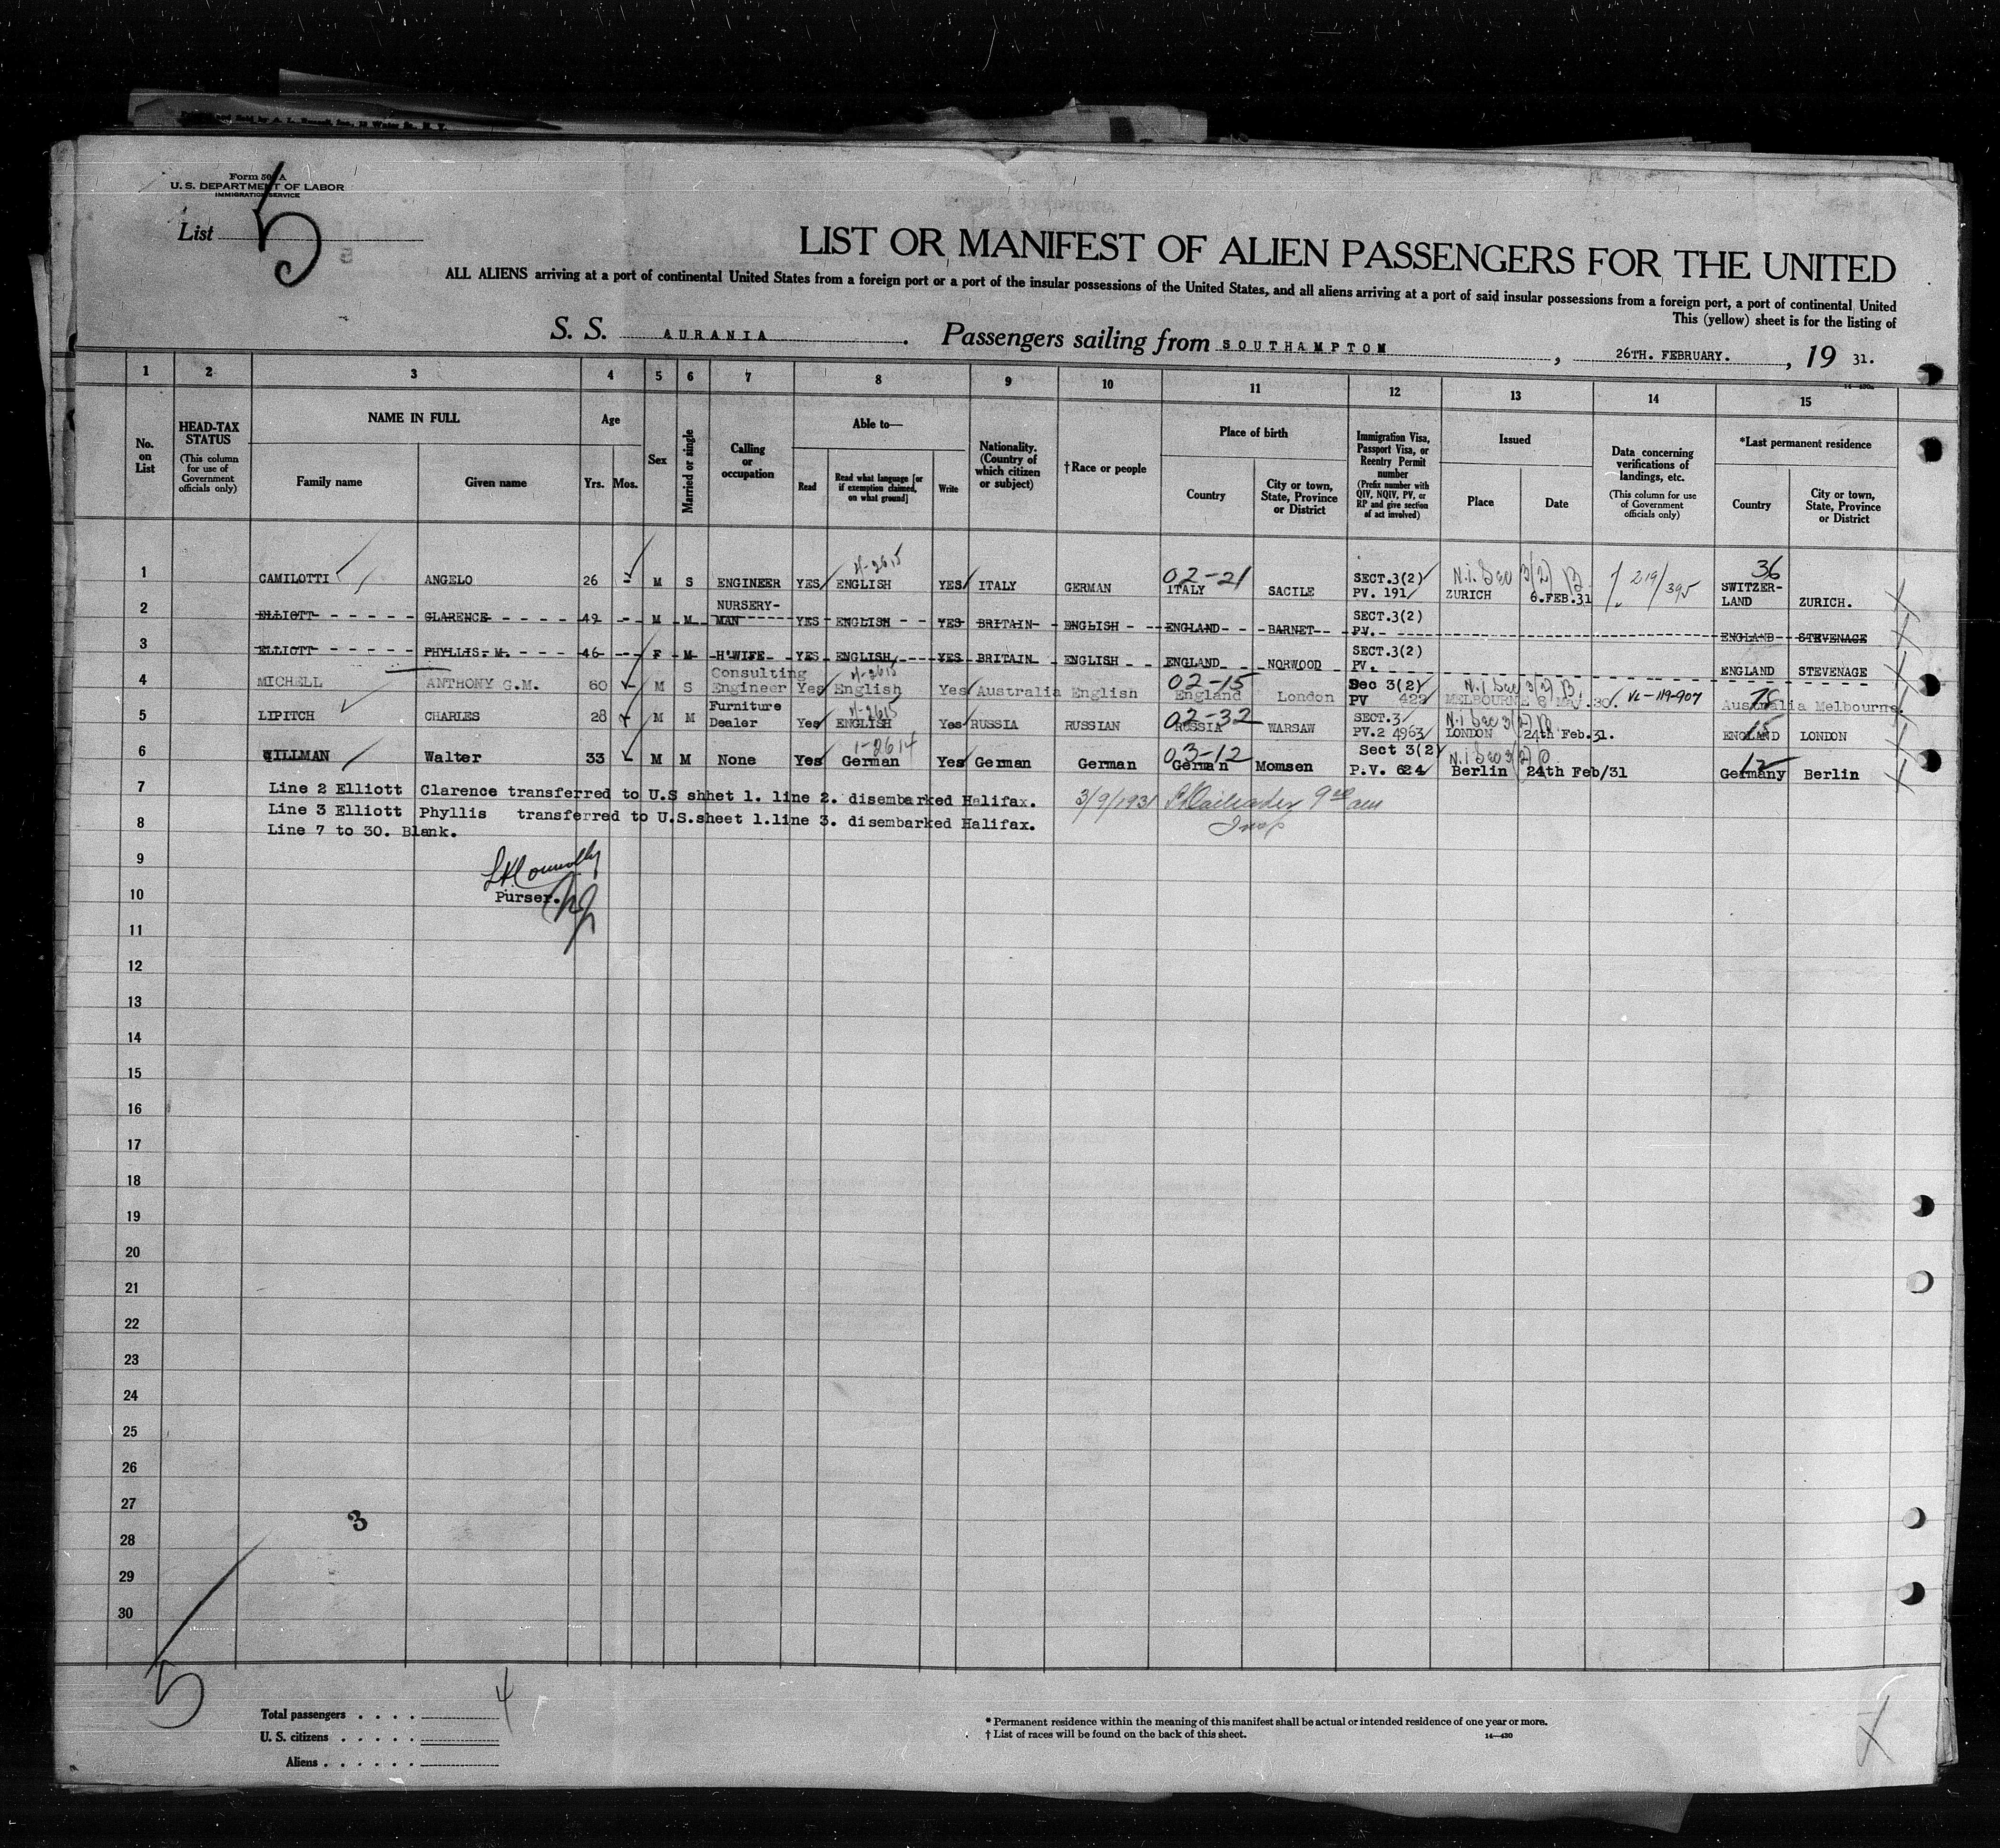 Form 500 A
U. S. DEPARTMENT OF LABOR
IMMIGRATION SERVICE
List 5
LIST OR MANIFEST OF ALIEN PASSENGERS FOR THE UNITED
ALL ALIENS arriving at a port of continental United States from a foreign port or a port of the insular possessions of the United States, and all aliens arriving at a port of said insular possessions from a foreign port, a port of continental United
This (yellow) sheet is for the listing of
S. S. AURANIA. Passengers sailing from SOUTHAMPTOM, 26TH. FEBRUARY., 19 31.
14—430a
1 2 3 4 5 6 7 8 9 10 11 12 13 14 15
No. on List
HEAD-TAX STATUS
(This column for use of Government officials only)
NAME IN FULL
Family name
Given name
Age
Yrs. Mos.
Sex
Married or single
Calling or occupation
Able to—
Read
Read what language [or if exemption claimed, on what ground]
Write
Nationality. (Country of which citizen or subject)
†Race or people
Place of birth
Country
City or town, State, Province or District
Immigration Visa, Passport Visa, or Reentry Permit number
(Prefix number with QIV, NQIV, PV, or RP and give section of act involved)
Issued
Place
Date
Data concerning verifications of landings, etc.
(This column for use of Government officials only)
*Last permanent residence
Country
City or town, State, Province or District
1 CAMILOTTI ANGELO 26 - M S ENGINEER YES 4-2615 ENGLISH YES ITALY GERMAN 02-21 ITALY SACILE SECT.3(2) PV. 191 N.i. Sec 3(2) B ZURICH 6.FEB.31 219/395 36 SWITZER-LAND ZURICH.
2 ELLIOTT CLARENCE 49 - M M NURSERY-MAN YES ENGLISH YES BRITAIN ENGLISH ENGLAND BARNET SECT.3(2) PV. ENGLAND STEVENAGE
3 ELLIOTT PHYLLIS. M. 46 - F M H'WIFE YES ENGLISH YES BRITAIN ENGLISH ENGLAND NORWOOD SECT.3(2) PV. ENGLAND STEVENAGE
4 MICHELL ANTHONY G.M. 60 - M S Consulting Engineer Yes 4-2615 English Yes Australia English 02-15 England London Sec 3(2) PV 429 N.i Sec 3(2) B. MELBOURNE 30. VL-119-907 78 Australia Melbourne.
5 LIPITCH CHARLES 28 M M Furniture Dealer Yes 4-2615 ENGLISH Yes RUSSIA RUSSIAN 02-32 RUSSIA WARSAW SECT.3/ PV.2 4963 N.i Sec 3(2) B LONDON 24th Feb.31. 15 ENGLAND LONDON
6 Walter 33 M M None Yes 1-2614 German Yes German German 03-12 German Momsen Sect 3(2) P.V. 624 N.I Sec 3(2) Berlin 24th Feb/31 12 Germany Berlin
7 Line 2 Elliott Clarence transferred to U.S shhet 1. line 2. disembarked Halifax. 3/9/1931 9 00 am
Line 3 Elliott Phyllis transferred to U.S.sheet 1.line 3. disembarked Halifax. Insp
8 Line 7 to 30. Blank.
9
Purser.
10
11
12
13
14
15
16
17
18
19
20
21
22
23
24
25
26
27
3
28
29
30
5
Total passengers . . . . 4
U. S. citizens . . . . .
Aliens . . . . . .
* Permanent residence within the meaning of this manifest shall be actual or intended residence of one year or more.
† List of races will be found on the back of this sheet.
14—430
X